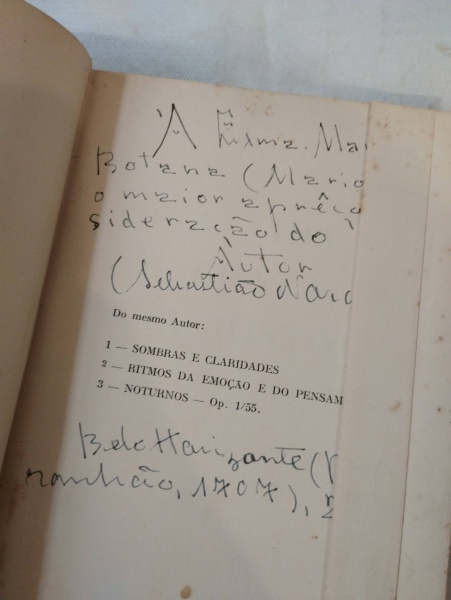 À Exma. Mar
Botana (Mario
o maior aprêço
sideração do
Autor
(Sebastião Narc
Do mesmo Autor:
1 — SOMBRAS E CLARIDADES
2 — RITMOS DA EMOÇÃO E DO PENSAM
3 — NOTURNOS — Op. 1/55.
Belo Horizonte (
ranhão, 1707),